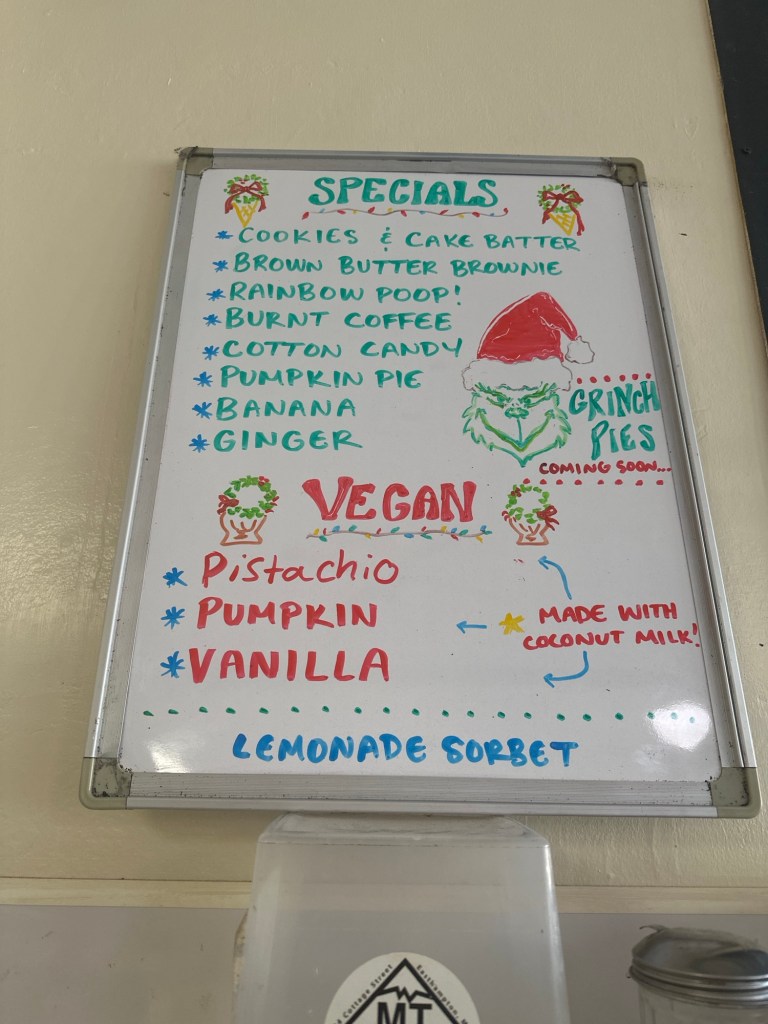 SPECIALS
* COOKIES & CAKE BATTER
* BROWN BUTTER BROWNIE
* RAINBOW POOP!
* BURNT COFFEE
* COTTON CANDY
* PUMPKIN PIE
* BANANA
* GINGER
GRINCH
PIES
COMING SOON...
VEGAN
* Pistachio
* PUMPKIN
* VANILLA
MADE WITH
COCONUT MILK!
LEMONADE SORBET
Cottage Street
Easthampton,
MT